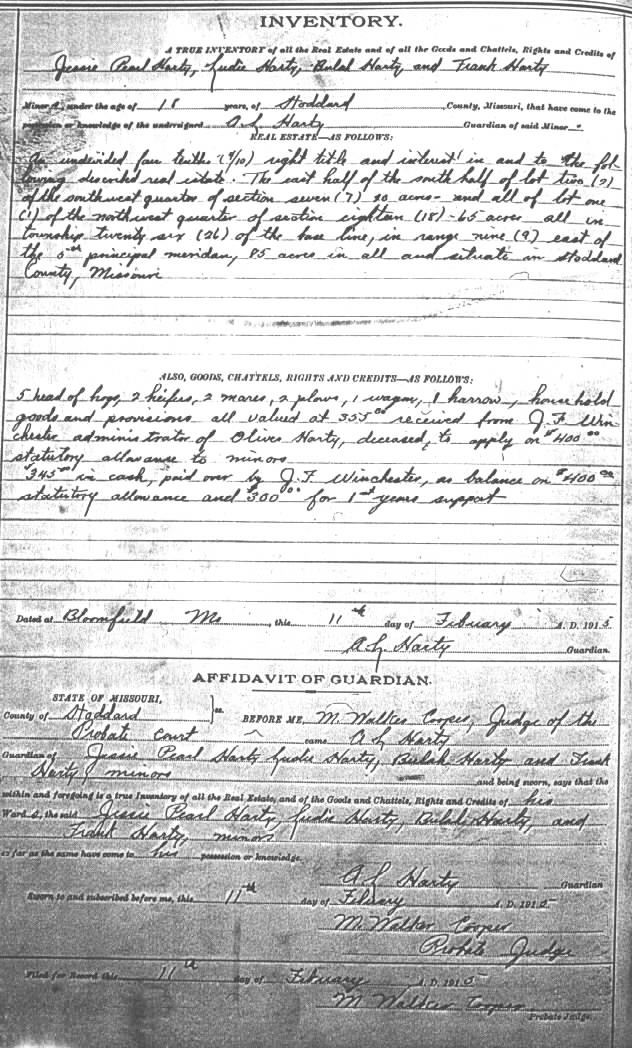 INVENTORY.
A TRUE INVENTORY of all the Real Estate and of all the Goods and Chattels, Rights and Credits of
Jessie Pearl Harty, Ludie Harty, Bulah Harty, and Frank Harty
Minor s, under the age of 18 years, of Stoddard County, Missouri, that have come to the
possession or knowledge of the undersigned A L Harty Guardian of said Minor s
REAL ESTATE—AS FOLLOWS:
An undivided four tenths (4/10) right title and interest in and to the fol-
lowing described real estate. The east half of the south half of lot two (2)
of the southwest quarter of section seven (7) 20 acres - and all of lot one
(1) of the northwest quarter of section eighteen (18) - 65 acres all in
township twenty six (26) of the base line, in range nine (9) east of
the 5th principal meridan, 85 acres in all and situate in Stoddard
County, Missouri
ALSO, GOODS, CHATTELS, RIGHTS AND CREDITS—AS FOLLOWS:
5 head of hogs, 2 heifers, 2 mares, 2 plows, 1 wagon, 1 harrow, household
goods and provisions all valued at 355.00 received from J. F Win-
chester administrator of Olives Harty, deceased, to apply on $400.00
statutory allowance to minors
$345.00 in cash, paid over by J. F Winchester, as balance on $400.00
statutory allowance and $300.00 for 1st years support
Dated at Bloomfield Mo, this 11th day of February A. D. 1915
A. L. Harty Guardian.
AFFIDAVIT OF GUARDIAN.
STATE OF MISSOURI,
County of Stoddard } ss. BEFORE ME, M. Walker Cooper, Judge of the
Probate Court came A L Harty
Guardian of Jessie Pearl Harty Ludie Harty, Bulah Harty and Frank
Harty minors and being sworn, says that the
within and foregoing is a true Inventory of all the Real Estate, and of the Goods and Chattels, Rights and Credits of his
Ward s, the said Jessie Pearl Harty, Ludie Harty, Bulah Harty, and
Frank Harty, minors
as far as the same have come to his possession or knowledge.
A L Harty Guardian
Sworn to and subscribed before me, this 11th day of February A. D. 1915
M. Walker Cooper
Probate Judge
Filed for Record this 11th day of February A. D. 1915
M Walker Cooper
Probate Judge.